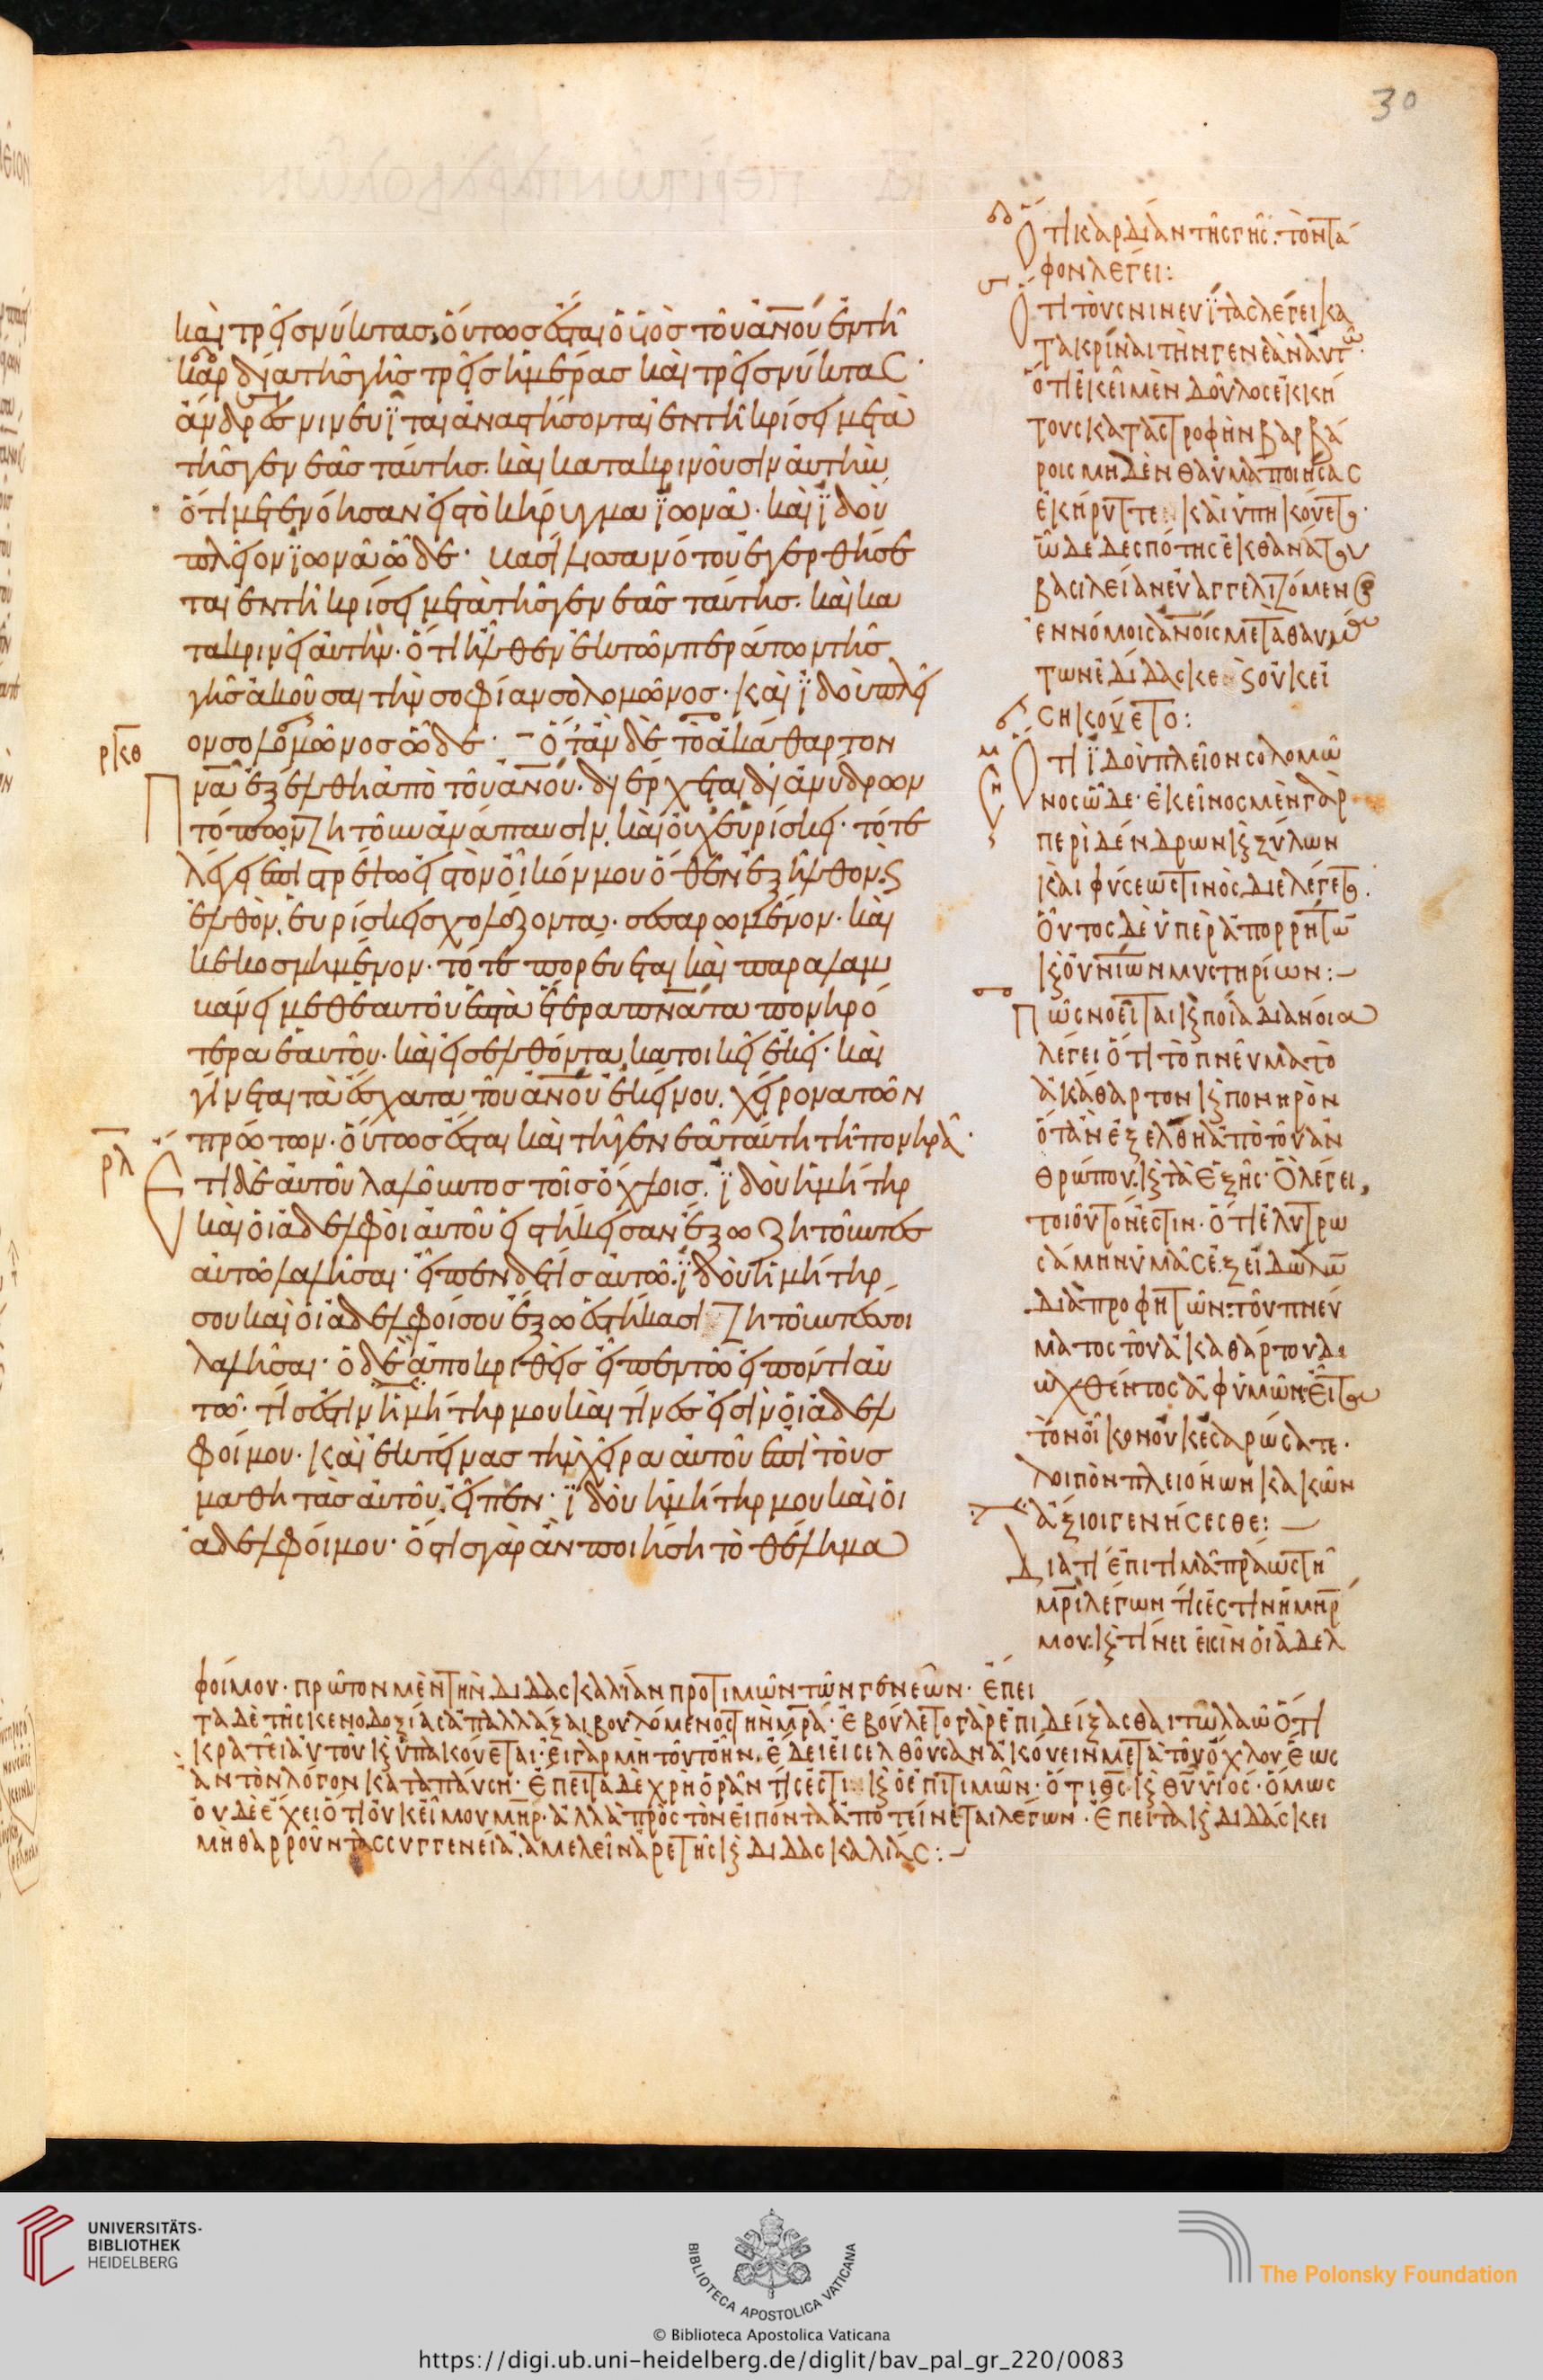 30
καὶ τρεῖς νύκτας, ὄυτως ἔσται ὁ υἱὸς τοῦ ἀνου ἐν τῆ
καρδία τῆς γῆς τρεῖς ἡμέρας καὶ τρεῖς νύκτας·
ἄνδρες νινευῖται ἀναστήσονται ἐν τῆ κρίσει μετὰ
τῆς γενεᾶς ταύτης. καὶ κατακρινοῦσιν ἀυτὴν
ὅτι μετενόησαν εἰς τὸ κήρυγμα ϊωνᾶ. καὶ ϊδοὺ
πλεῖον ϊωνᾶ ὧδε· βασίλισσα νότου ἐγερθήσε
ται ἐν τῆ κρίσει μετὰ τῆς γενεᾶς ταύτης. καὶ κα
τακρινεῖ ἀυτήν· ὅτι ἦλθεν ἐκ τῶν περάτων τῆς
γῆς ἀκοῦσαι τὴν σοφίαν σολομῶνος· καὶ ϊδοὺ πλεῖ
ον σολομῶνος ὧδε· ὅταν δὲ τὸ ἀκάθαρτον
ρκθ
πνα ἐξέλθη ἀπὸ τοῦ ἀνου. διέρχεται δι ἀνύδρων
τόπων ζητοῦν ἀνάπαυσιν. καὶ οὐχ ἑυρίσκει· τότε
λέγει ἐπιστρέψω εἰς τὸν οἶκόν μου ὅθεν ἐξῆλθον. ϛ
ἐλθὸν, ἑυρίσκει σχολάζοντα· σεσαρωμένον· καὶ
κεκοσμημένον· τότε πορεύεται καὶ παραλαμ
βάνει μεθ ἑαυτοῦ ἑπτὰ ἕτερα πνατα πονηρό
τερα ἑαυτοῦ· καὶ εἰσελθόντα κατοικεῖ ἐκεῖ· καὶ
γίνεται τὰ ἔσχατα τοῦ ἀνου ἐκείνου. χείρονα τῶν
πρώτων· ὄυτως ἔσται καὶ τῆ γενεᾶ ταύτη τῆ πονηρᾶ·
ρλ
Ετι δὲ ἀυτοῦ λαλοῦντος τοῖς ὄχλοις. ϊδοὺ ἡ μήτηρ
καὶ οἱ ἀδελφοὶ ἀυτοῦ εἱστήκεισαν ἔξω ζητοῦντές
ἀυτῶ λαλῆσαι· εἶπεν δέ τις ἀυτῶ. ϊδοὺ ἡ μήτηρ
σου καὶ οἱ ἀδελφοί σου ἔξω ἑστήκασι ζητοῦντές σοι
λαλῆσαι· ὁ δὲ ἀποκριθεὶς εἶπεν τῶ εἰπόντι ἀυ
τῶ· τίς ἐστιν ἡ μήτηρ μου καὶ τίνες εἰσὶν οἱ ἀδελ
φοί μου· καὶ ἐκτείνας τὴν χεῖρα ἀυτοῦ ἐπὶ τοὺς
μαθητὰς ἀυτοῦ, εἶπεν· ϊδοὺ ἡ μήτηρ μου καὶ οἱ
ἀδελφόι μου· ὅστις γὰρ ἂν ποιήση τὸ θέλημα
Ὅτι καρδίαν τῆς γῆς. τὸν τά
φον λέγει:
Ὅτι τοὺς νινευΐτας λέγει κα
τακρῖναι τὴν γενεὰν ἀυτῶν·
ὅτι ἐκεῖ μὲν δοῦλος ἐκ κή
τους καταστροφὴν βαρβά
ροις μηδὲν θαῦμα ποιήσας
ἐκήρυττε καὶ ὑπηκούετο·
ὧδε δεσπότης ἐκ θανάτου
βασιλείαν ἐυαγγελιζόμενος
ἐννόμοις ἀνοις μετὰ θαυμά
των ἐδίδασκε ϛ οὐκ εἰ
σηκούετο:
Ὅτι ϊδοὺ πλεῖον σολομῶ
νος ὧδε· ἐκεῖνος μὲν γὰρ
περὶ δένδρων ϛ ξύλων
καὶ φύσεώς τινὸς διελέγετο.
ὅυτος δὲ ὑπὲρ ἀπορρήτων
ϛ ὀυνίων μυστηρίων:
Πῶς νοεῖται ϛ ποία διανόια
λέγει ὅτι τὸ πνεῦμα τὸ
ἀκάθαρτον ϛ πονηρὸν
ὅταν ἐξέλθη ἀπὸ τοῦ ἀν
θρώπου. ϛ τὰ ἑξῆς· ὃ λέγει,
τοιοῦτον ἐστιν· ὅτι ἐλυτρω
σάμην ὑμᾶς ἐξ εἰδώλων
διὰ προφητῶν. τοῦ πνεύ
ματος τοῦ ἀκαθάρτου δι
ωχθέντος ἀφ ὑμῶν. εἶτα
τὸν οἶκον οὐκ ἐσαρώσατε·
λοιπὸν πλειόνων κακῶν
ἄξιοι γενήσεσθε:
Διατί ἐπιτιμᾶ πράως τῆ
μρι λέγων τίς ἐστιν ἡ μηρ
μου. ϛ τίνες ἐισὶν οἱ ἀδελ
φοί μου· πρῶτον μὲν τὴν διδασκαλίαν προτιμῶν τῶν γονεῶν· ἔπει
τα δὲ τῆς κενοδοξίας ἀπαλλάξαι βουλόμενος τὴν μρα· ἐβούλετο γὰρ ἐπιδείξασθαι τῶ λαῶ ὅτι
κρατεῖ ἀυτοῦ ϛ ὑπακούεται· εἰ γὰρ μὴ τοῦτο ἦν. ἔδει εἰσελθοῦσαν ἀκούειν μετὰ τοῦ ὄχλου ἕως
ἂν τὸν λόγον καταπάυση· ἔπειτα δὲ χρὴ ὁρᾶν τίς ἐστι ϛ ὁ ἐπιτιμῶν· ὅτι θς ϛ θυ υἱός· ὅμως
οὐδὲ ἔχει ὅτι οὐκ εἶ μου μηρ· ἀλλὰ πρὸς τὸν εἰπόντα ἀποτείνεται λέγων· ἔπειτα ϛ διδάσκει
μὴ θαρροῦντας συγγενεία, ἀμελεῖν ἀρετῆς ϛ διδασκαλίας:
UNIVERSITÄTS-
BIBLIOTHEK
HEIDELBERG
BIBLIOTECA APOSTOLICA VATICANA
The Polonsky Foundation
© Biblioteca Apostolica Vaticana
https://digi.ub.uni-heidelberg.de/diglit/bav_pal_gr_220/0083